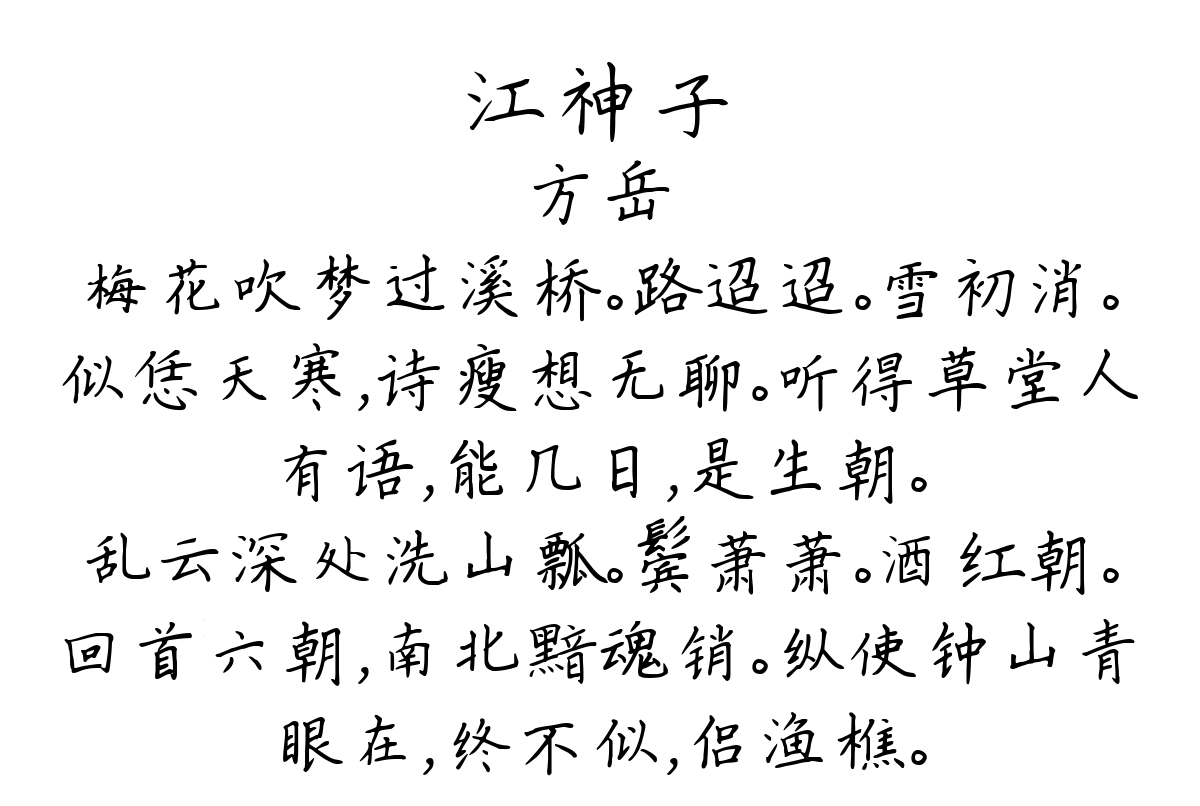 江神子
方岳
梅花吹梦过溪桥。路迢迢。雪初消。
似恁天寒,诗瘦想无聊。听得草堂人
有语,能几日,是生朝。
乱云深处洗山瓢。鬓萧萧。酒红朝。
回首六朝,南北黯魂销。纵使钟山青
眼在,终不似,侣渔樵。